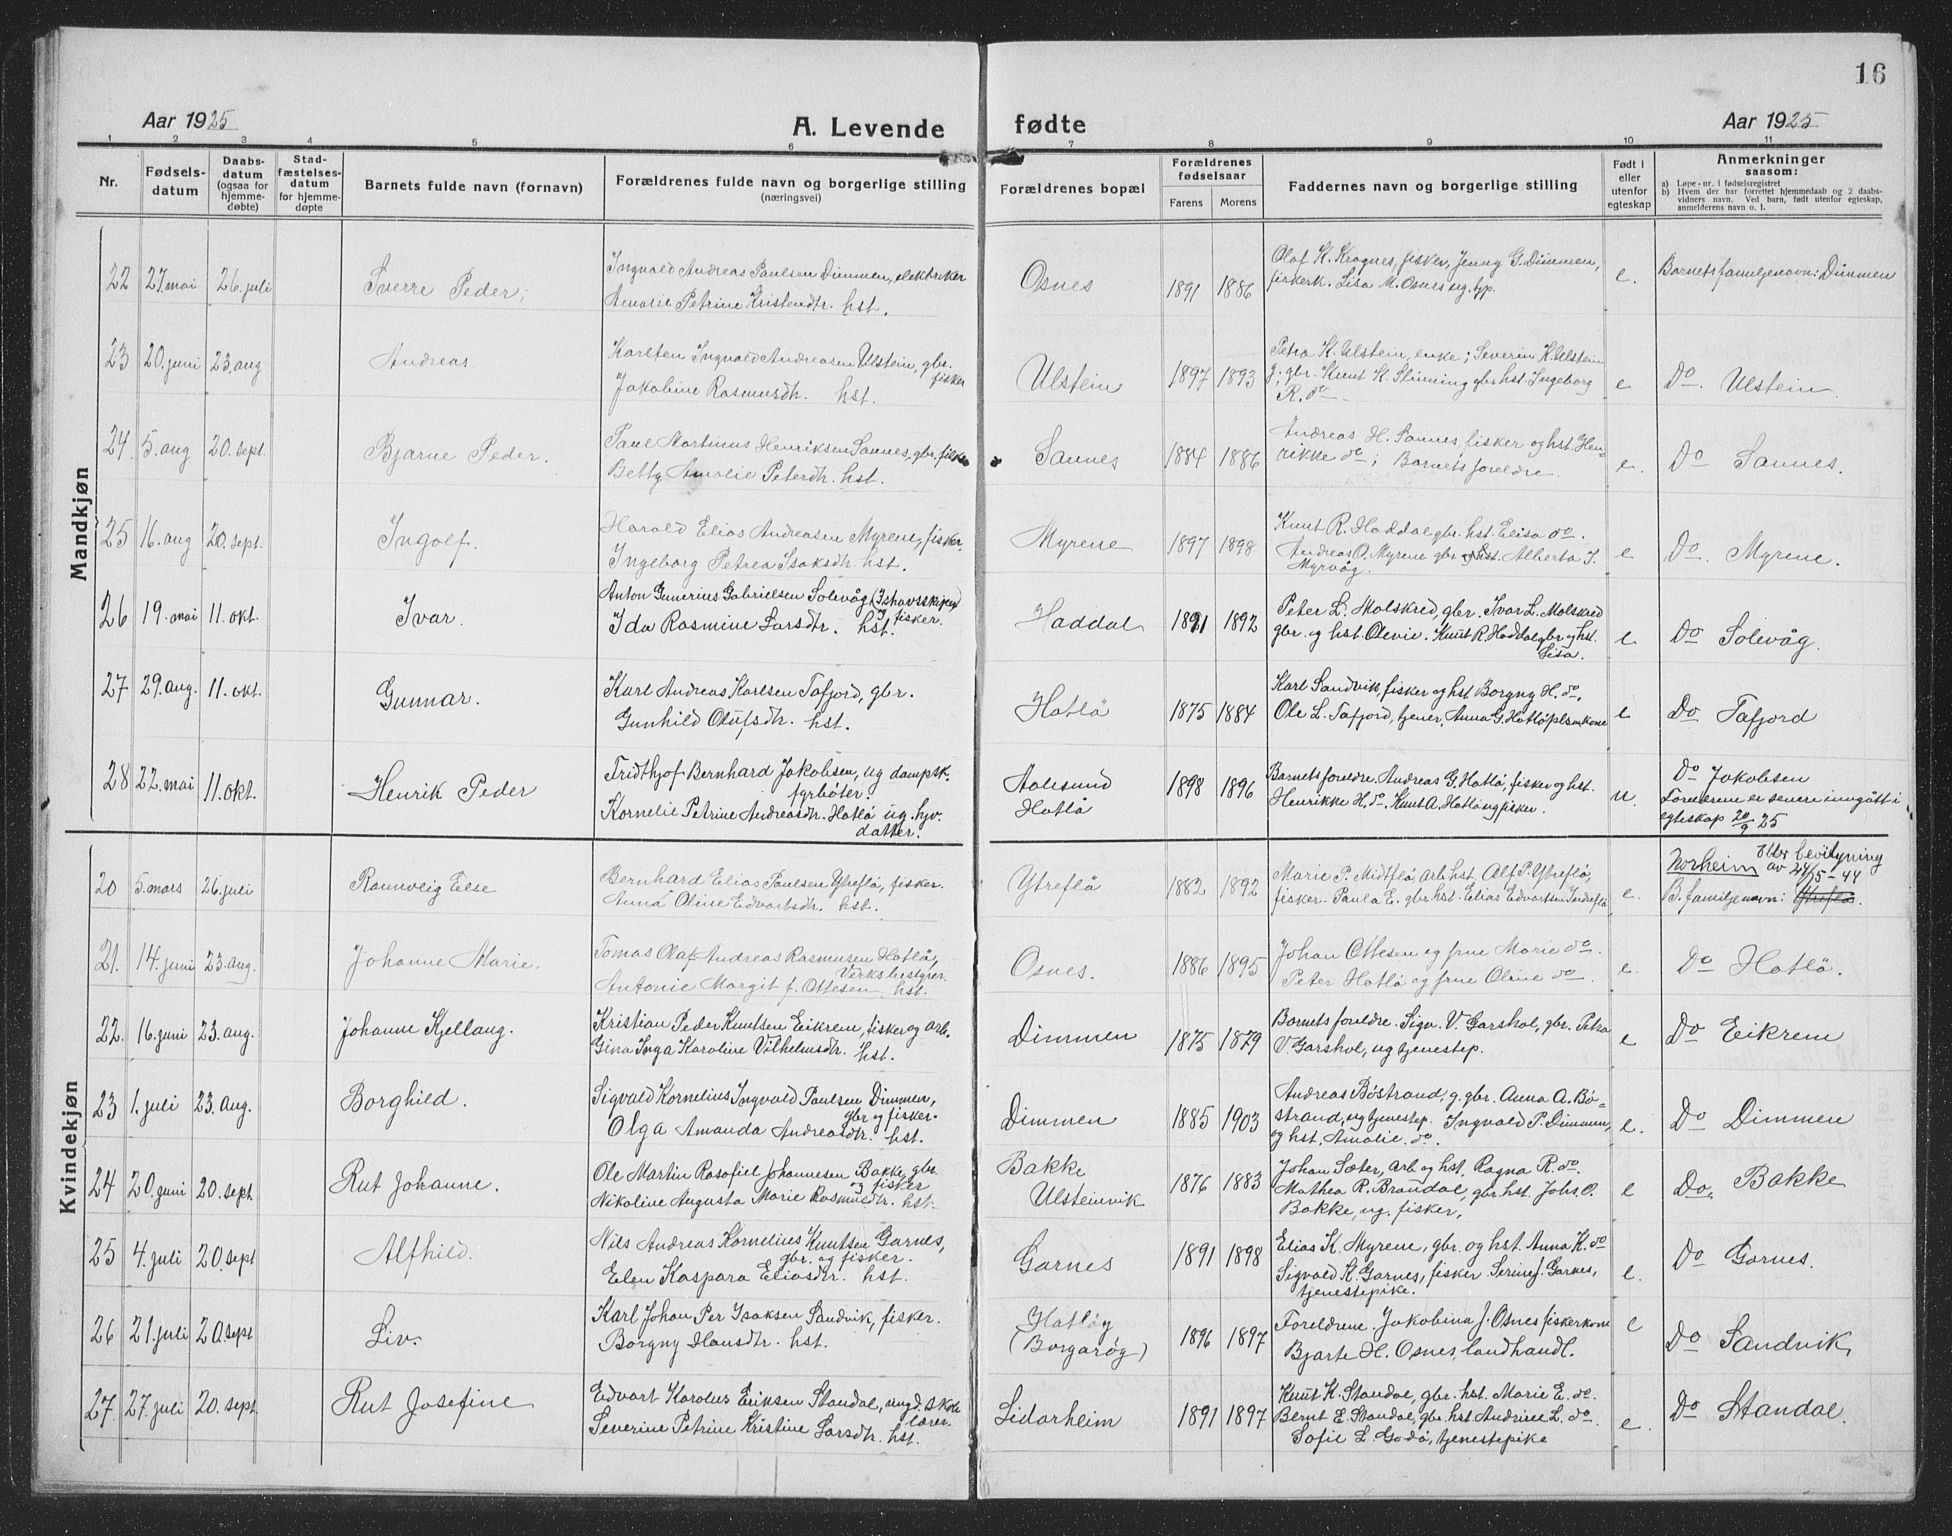 16
Aar 1925
A. Levende fødte
Aar 1925
1 2 3 4 5 6 7 8 9 10 11
Nr.
Fødsels-
datum
Daabs-
datum
(ogsaa for
hjemme-
døbte)
Stad-
fæstelses-
datum
for hjemme-
døpte
Barnets fulde navn (fornavn)
Forældrenes fulde navn og borgerlige stilling
(næringsvei)
Forældrenes bopæl
Forældrenes
fødselsaar
Farens Morens
Faddernes navn og borgerlige stilling
Født i
eller
utenfor
egteskap
Anmerkninger
saasom:
a) Løpe-nr. i fødselsregistret
b) Hvem der har forrettet hjemmedaab og 2 daabs-
vidners navn. Ved barn, født utenfor egteskap,
anmelderens navn o. l.
Mandkjøn
22 27. mai 26. juli Sverre Peder,
Ingvald Andreas Paulsen Dimmen, elektriker
Amalie Petrine Kristendtr. hst.
Osnes 1891 1886
Olaf K. Kragnes, fisker, Jenny G. Dimmen,
fiskerk. Lisa M. Osnes ug. tjp.
e. Barnets familjenavn: Dimmen
23 20. juni 23. aug Andreas
Karsten Ingvald Andreasen Ulstein, gbr.
fisker
Jakobine Rasmusdtr. hst.
Ulstein 1897 1893
Petra K. Ulstein, enke; Severin K. Ulstein
g. gbr. Knut K. Skinning gbr. hst. Ingeborg
R. do
e Do. Ulstein
24 5. aug 20. sept. Bjarne Peder.
Paul Martinus Henriksen Sannes, gbr. fisker
Betty Amalie Petersdtr. hst.
Sannes 1884 1886
Andreas H. Sannes, fisker og hst. Hen-
rikke do; Barnets foreldre
e. Do Sannes.
25 16. aug 20. sept. Ingolf.
Harald Elias Andreasen Myrene, fisker.
Ingeborg Petrea Isaksdtr. hst.
Myrene 1897 1898
Knut R. Haddal gbr. hst. Elisa do.
Andreas A. Myrene gbr. og hst. Alberta I.
Myrvåg.
e Do Myrene.
26 19. mai 11. okt. Ivar.
Anton Gunerius Gabrielsen Solevåg (Ishavsskipper)
fisker.
Ida Rasmine Larsdtr. hst.
Haddal 1891 1892
Peter L. Molskred, gbr. Ivar L. Molskred
gbr. og hst. Olevie. Knut R. Haddal gbr og hst.
Lisa.
e Do Solevåg.
27 29. aug. 11. okt. Gunnar.
Karl Andreas Karlsen Tafjord, gbr.
Gunhild Olufsdtr. hst.
Hatlø 1875 1884
Karl Sandvik, fisker og hst. Borgny H. do,
Ole L. Tafjord, tjener, Anna G. Hatlø plsenkone
e Do Tafjord
28 22. mai 11. okt. Henrik Peder
Fridthjof Bernhard Jakobsen, ug dampsk.
fyrbøter.
Kornelie Petrine Andreasdtr. Hatlø ug. hjv.
datter.
Aalesund
Hatlø
1898 1896
Barnets foreldre. Andreas G. Hatlø, fisker og hst.
Henrikke H. do. Knut A. Hatlø ug fisker.
u. Do Jakobsen
Foreldrene er senere inngått i
egteskap 20/9 25
Kvindekjøn
20 5. mars 26. juli Rannveig Else
Bernhard Elias Paulsen Ytreflø, fisker.
Anna Oline Edvartsdtr. hst.
Ytreflø 1882 1892
Marie P. Midtflø arb. hst. Alf. P. Ytreflø,
fisker. Paula E. gbr. hst. Elias Edvartsen Indreflø
e.
Norheim iflr bevilgning
av 24/5 - 44
B. familjenavn: Ytreflø.
21. 14. juni 23. aug. Johanne Marie.
Tomas Olaf Andreas Rasmusen Hatlø,
Verksbestyrer.
Antonie Margit f. Ottesen, hst.
Osnes. 1886 1895
Johan Ottesen og frue Marie do.
Peter Hatlø og frue Oline do
e. Do Hatlø.
22. 16. juni 23. aug. Johanne Kjellaug.
Kristian Peder Knutsen Eikrem, fisker og arb.
Gina Inga Karoline Vilhelmsdtr. hst.
Dimmen 1875 1879
Barnets foreldre. Sigv. V. Garshol, gbr. Petra
V. Garshol, ug tjenestep.
e Do Eikrem
23 1. juli 23. aug. Borghild.
Sigvald Kornelius Ingvald Paulsen Dimmen,
gbr og fisker.
Olga Amanda Andreasdtr. hst.
Dimmen 1885 1903
Andreas Bøstrand, g. gbr. Anna A. Bø-
strand, ug tjenestep. Ingvald P. Dimmen,
og hst. Amalie do.
e. Do Dimmen
24 20. juni 20. sept Rut Johanne.
Ole Martin Rasofiel Johannesen Bakke, gbr.
og fisker
Nikoline Augusta Marie Rasmusdtr. hst.
Bakke
Ulsteinvik
1876 1883
Johan Sæter, arb og hst. Ragna R. do.
Mathea R. Brandal, gbr. hst. Johs. O.
Bakke, ug. fisker,
e Do. Bakke
25 4. juli 20. sept Alfhild.
Nils Andreas Kornelius Knutsen Garnes,
gbr. og fisker.
Elen Kaspara Eliasdtr. hst.
Garnes 1891 1898
Elias K. Myrene, gbr. og hst. Anna K. do
Sigvald K. Garnes, fisker Serine J. Garnes,
tjenestepike.
e. Do Garnes.
26 21. juli 20. sept Liv.
Karl Johan Per Isaksen Sandvik, fisker.
Borgny Hansdtr. hst.
Hatløy
(Borgarøy)
1896 1897
Foreldrene. Jakobina J. Osnes fiskerkone
Bjarte H. Osnes, landhandl.
e Do Sandvik
27 27. juli 20. sept. Rut Josefine
Edvart Karolus Eriksen Standal, ungd. skole
lærer.
Severine Petrine Kristine Larsdtr. hst.
Lidarheim 1891 1897
Knut K. Standal, gbr. hst. Marie E. do.
Bernt E. Standal, gbr. hst. Andrine L. do.
Sofie L. Godø, tjenestepike
e. Do Standal.